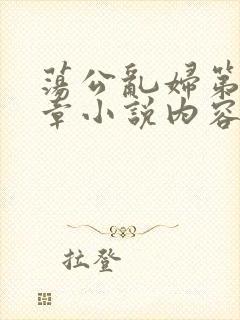 蕩公亂婦第
章小説内容
拉登